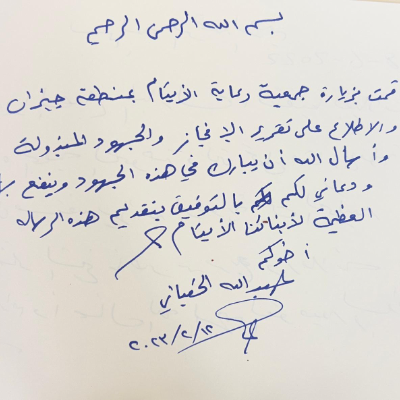 بسم الله الرحمن الرحيم
قمت بزيارة جمعية رعاية الأيتام بمنطقة جيزان
والاطلاع على تقرير الإنجاز والجهود المبذولة
وأسأل الله أن يبارك في هذه الجهود وينفع بها
ودعائي لكم بالتوفيق بتقديم هذه الرسالة
العظيمة لأبنائنا الأيتام
أخوكم
عبدالله
٢٠٢٣/٢/١٢